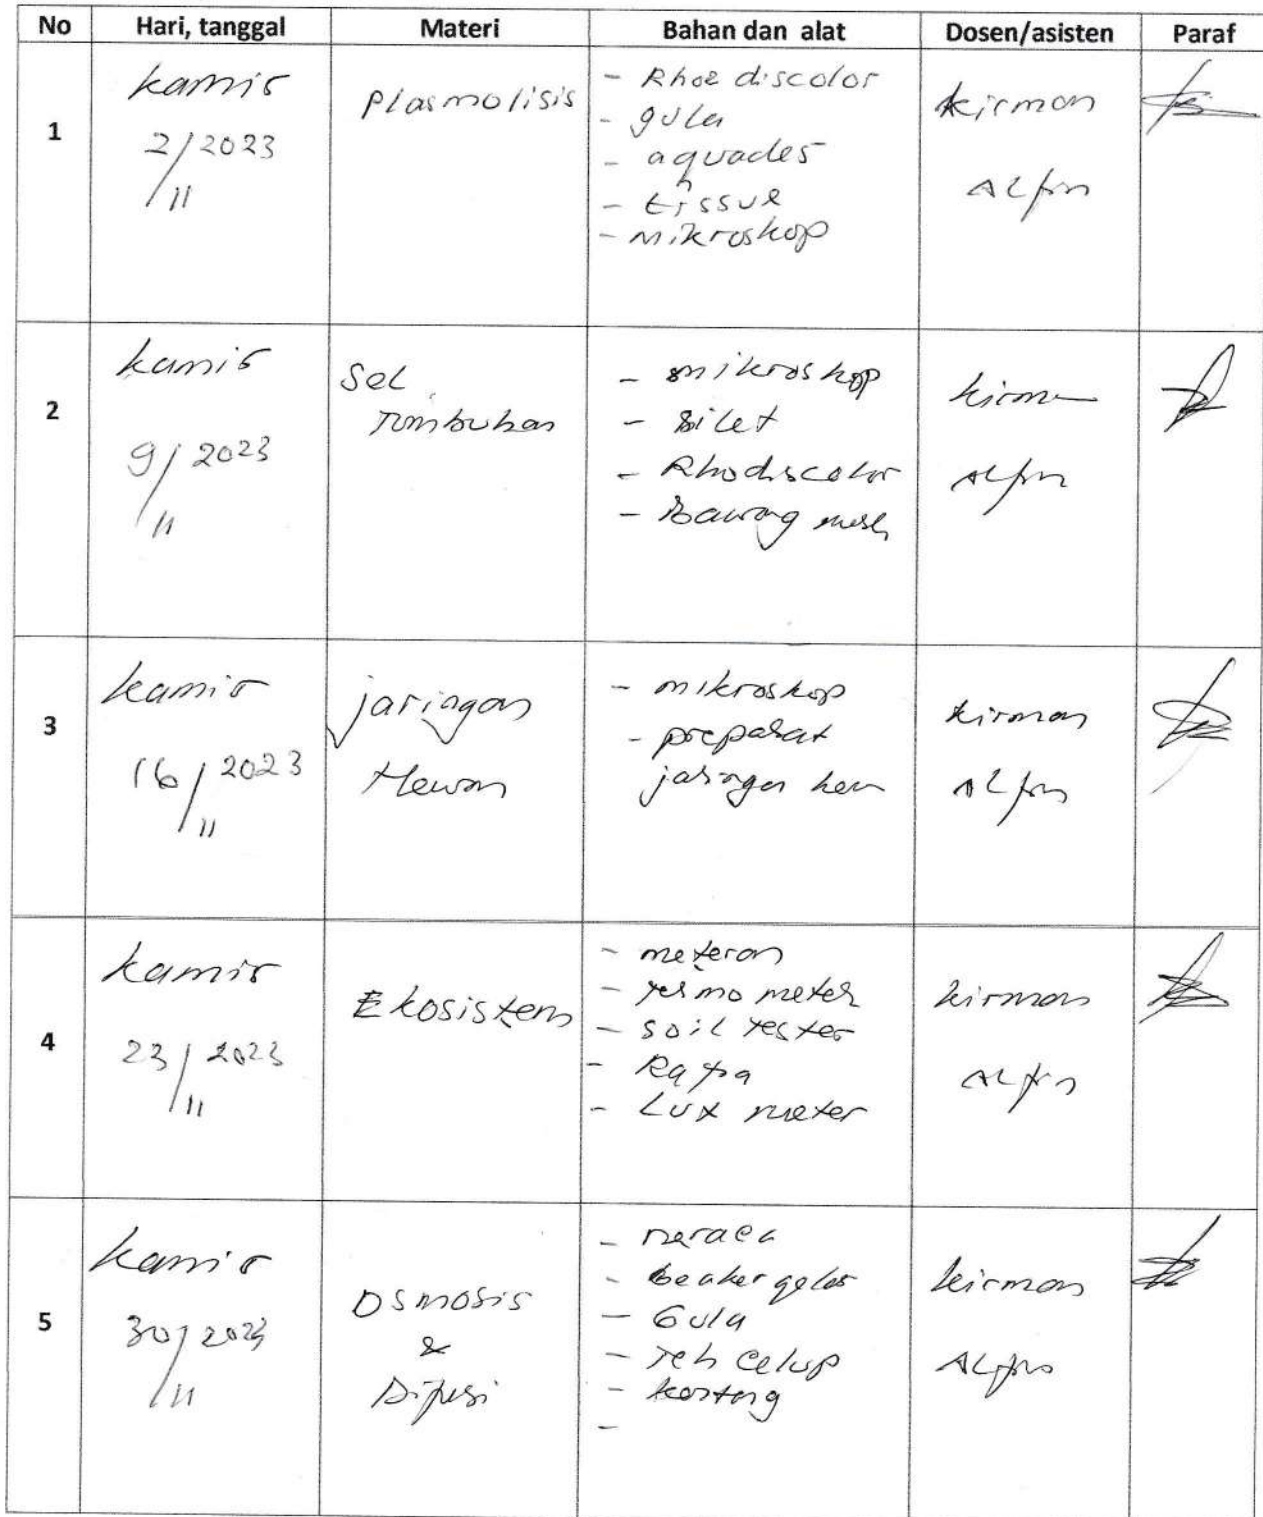 No Hari, tanggal Materi Bahan dan alat Dosen/asisten Paraf
1
Kamis
2/2023
11
Plasmolisis
- Rhoe discolor
- gula
- aquades
- tissue
- mikroskop
Kirman
Alfin
2
Kamis
9/2023
11
Sel
Tumbuhan
- mikroskop
- silet
- Rhodiscolor
- Bawang merah
Kirman
Alfin
3
Kamis
16/2023
11
jaringan
Hewan
- mikroskop
- preparat
jaringan hewan
Kirman
Alfin
4
Kamis
23/2023
11
Ekosistem
- meteran
- termo meter
- soil tester
- Rafia
- Lux meter
Kirman
Alfin
5
Kamis
30/2023
11
Osmosis
&
Difusi
- neraca
- beaker gelas
- Gula
- Teh celup
- kentang
-
Kirman
Alfin